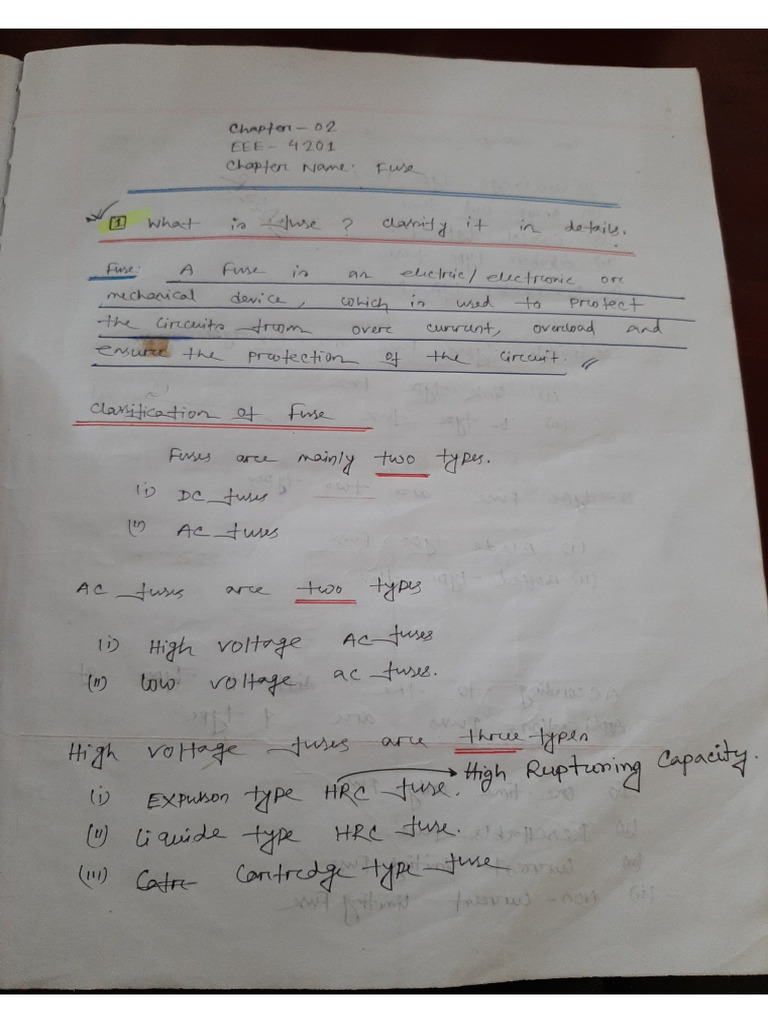 Chapter-02
EEE-4201
Chapter Name: Fuse
1 What is fuse? classify it in details.
Fuse: A Fuse is an electric/electronic or
mechanical device, which is used to protect
the circuits from over current, overload and
ensure the protection of the circuit.
Classification of Fuse
Fuses are mainly two types.
(i) DC fuses
(ii) AC fuses
AC fuses are two types
(i) High voltage AC fuses
(ii) low voltage ac fuses.
High voltage fuses are three types
High Rupturing Capacity.
(i) Expulson type HRC fuse.
(ii) Liquide type HRC fuse.
(iii) Cartredge type fuse